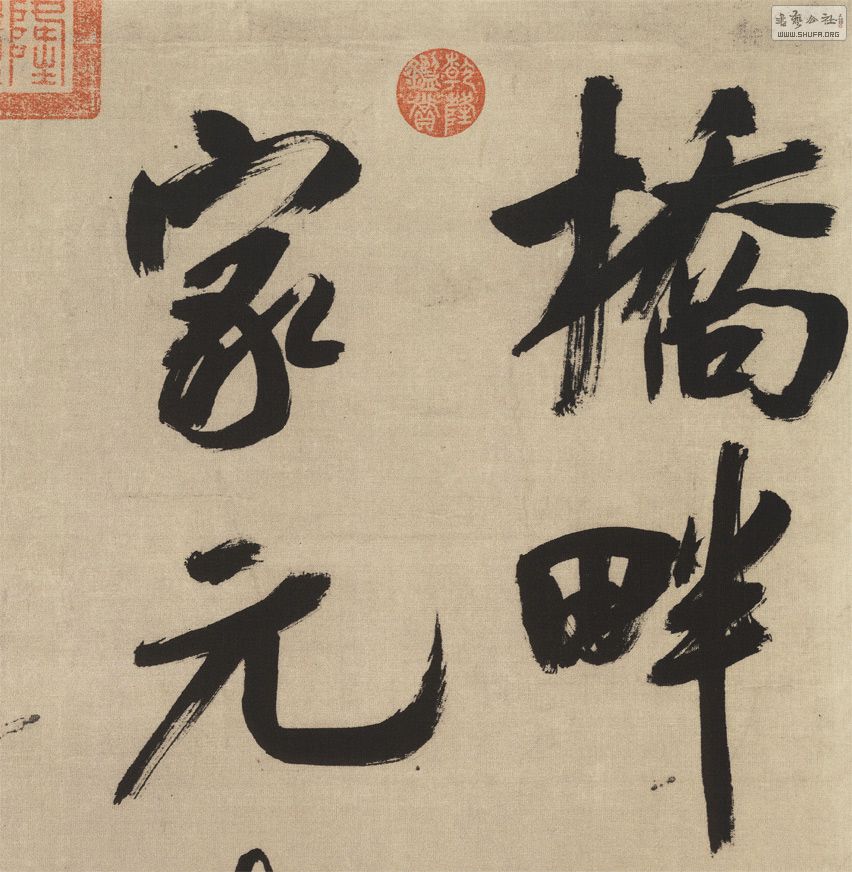 橋畔
家元
乾隆鑑賞
書藝公社
WWW.SHUFA.ORG